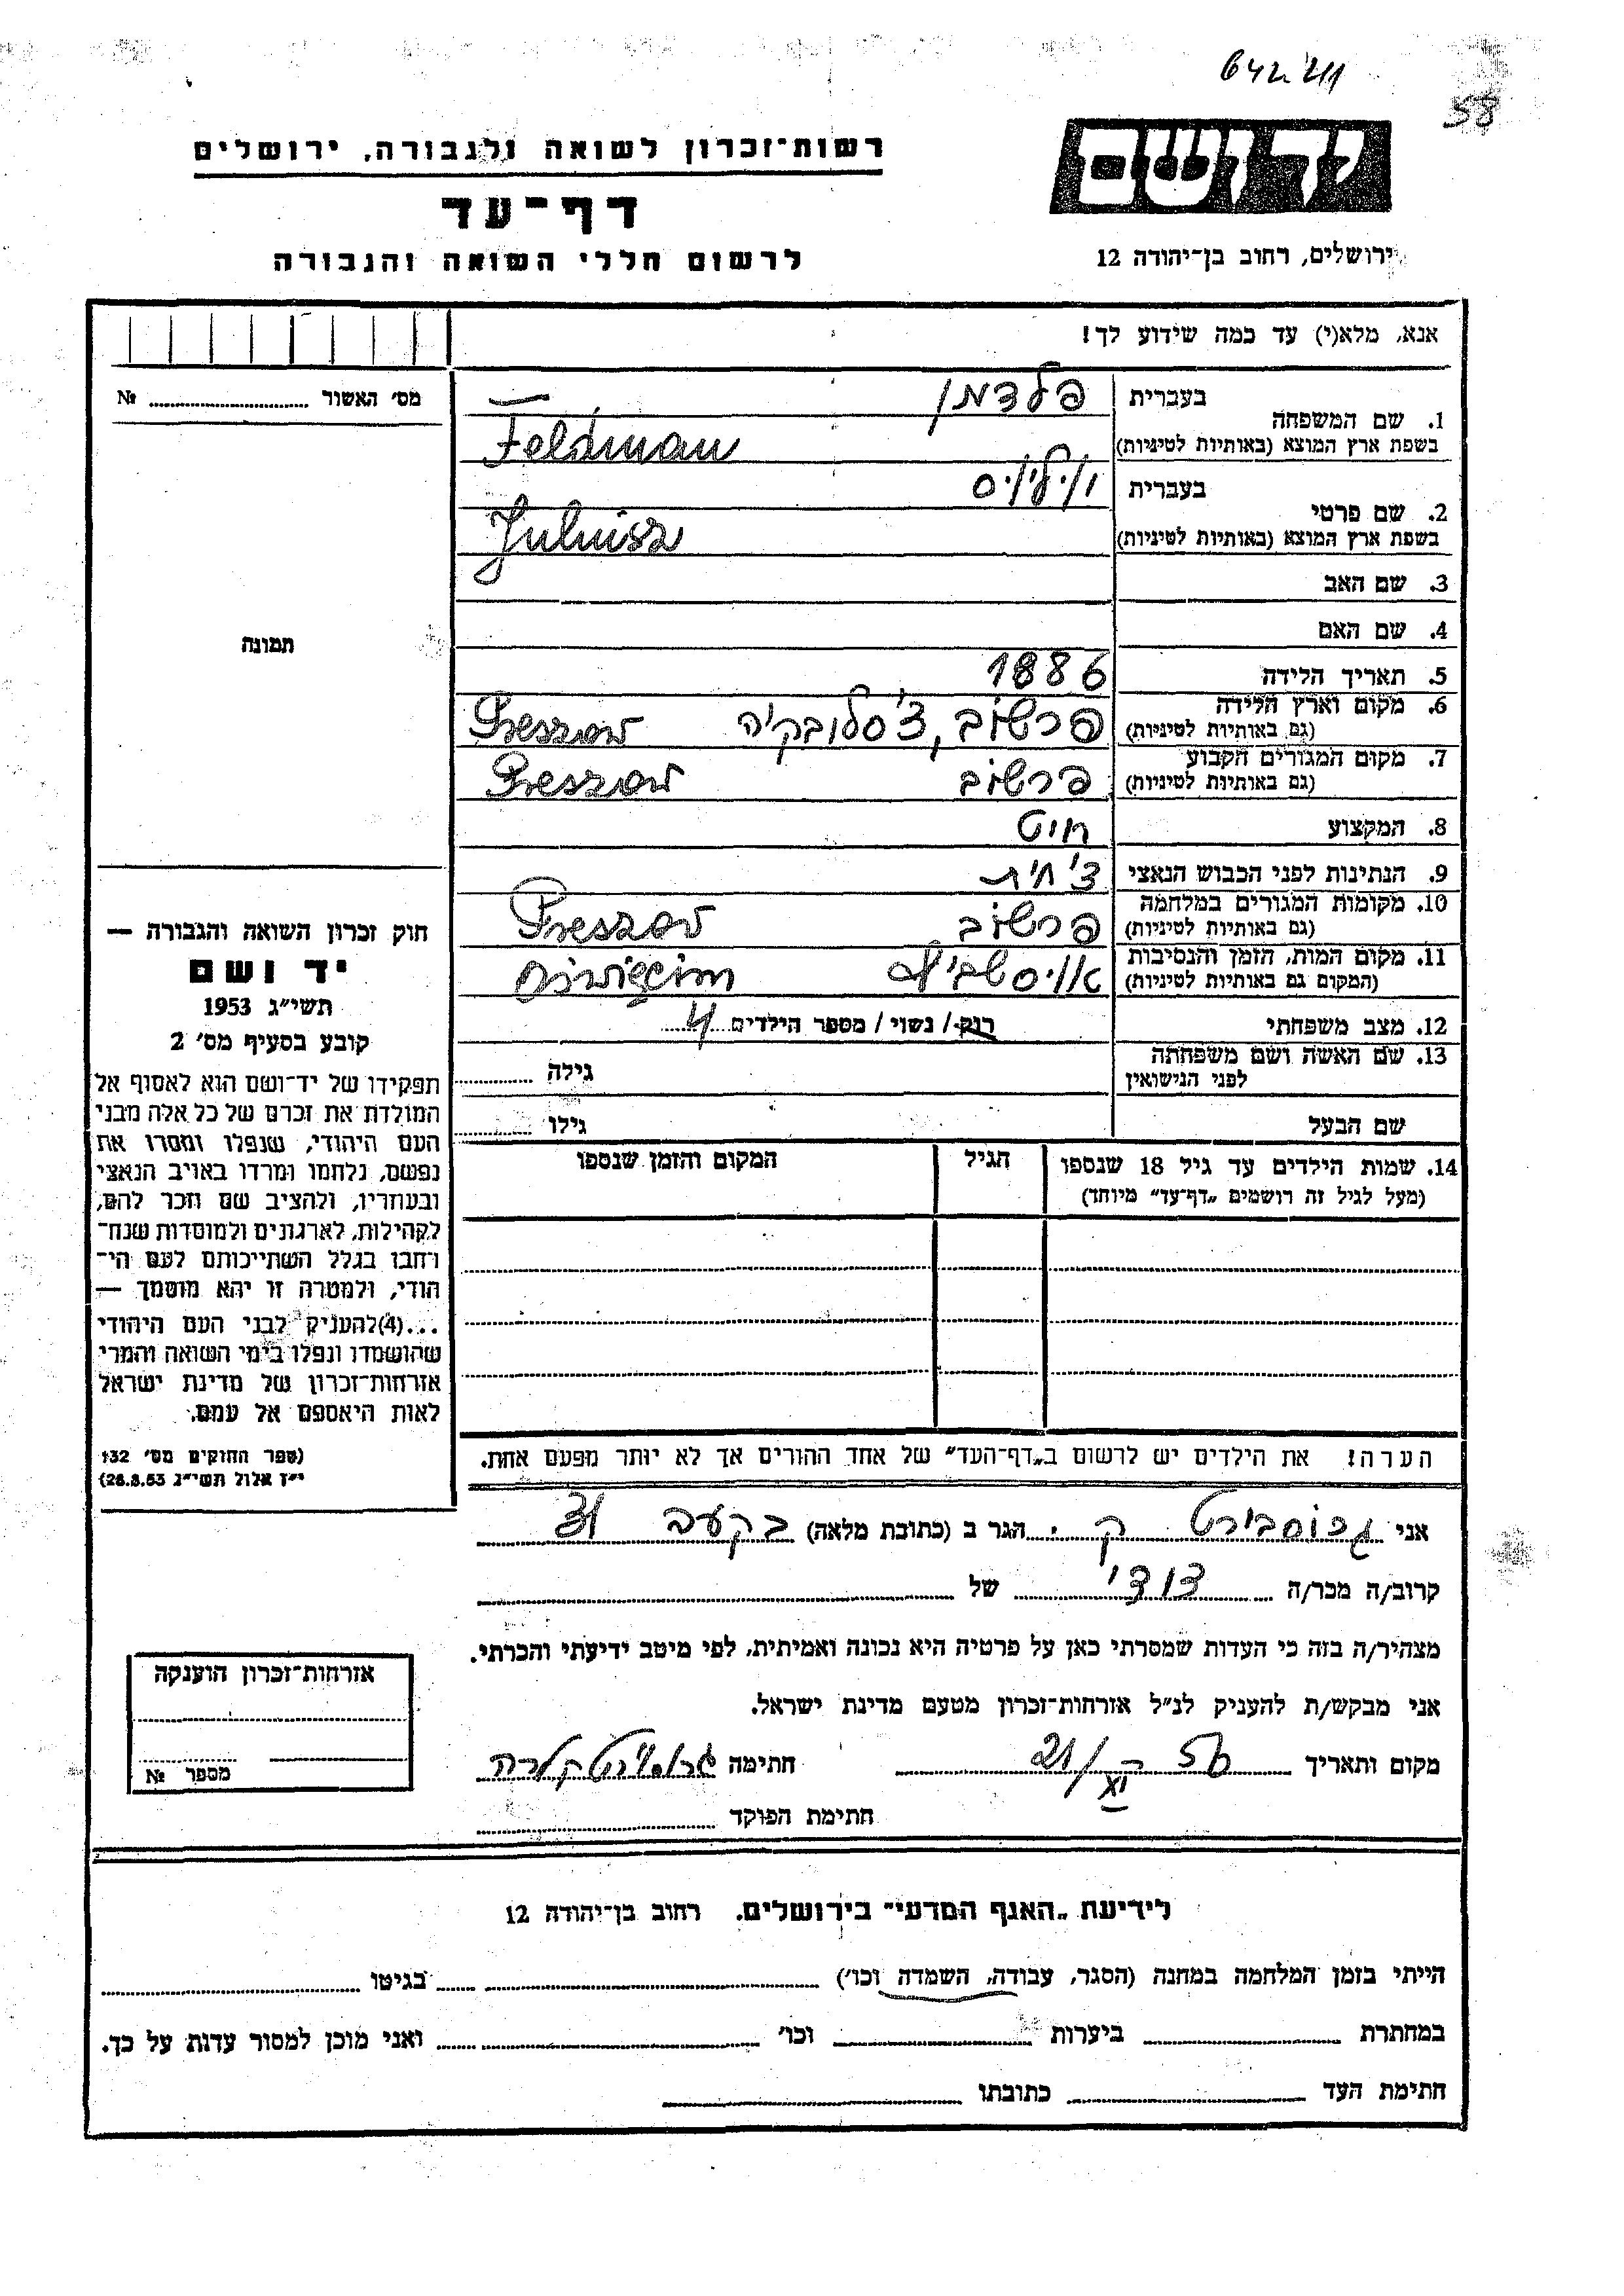 58
רשות־זכרון לשואה ולגבורה, ירושלים
דף־עד
לרשום חללי השואה והגבורה
יד ושם
ירושלים, רחוב בן־יהודה 12
אנא, מלא(י) עד כמה שידוע לך!
מס׳ האשור № 
תמונה
1. שם המשפחה בעברית פלדמן
בשפת ארץ המוצא (באותיות לטיניות) Feldman
2. שם פרטי בעברית
בשפת ארץ המוצא (באותיות לטיניות) Juliusz
3. שם האב
4. שם האם
5. תאריך הלידה 1886
6. מקום וארץ הלידה (גם באותיות לטיניות) פרשוב, צ'סלובקיה Preszow
7. מקום המגורים הקבוע (גם באותיות לטיניות) פרשוב Preszow
8. המקצוע חיט
9. הנתינות לפני הכבוש הנאצי צ'חית
10. מקומות המגורים במלחמה (גם באותיות לטיניות) פרשוב Preszow
11. מקום המות, הזמן והנסיבות (המקום גם באותיות לטיניות) Oświęcim
12. מצב משפחתי רוק / נשוי / מספר הילדים 4
13. שם האשה ושם משפחתה לפני הנישואין גילה
שם הבעל גילו
14. שמות הילדים עד גיל 18 שנספו הגיל המקום והזמן שנספו
(מעל לגיל זה רושמים „דף־עד״ מיוחד)
הערה! את הילדים יש לרשום ב„דף־העד״ של אחד ההורים אך לא יותר מפעם אחת.
חוק זכרון השואה והגבורה —
יד ושם
תשי״ג 1953
קובע בסעיף מס׳ 2
תפקידו של יד־ושם הוא לאסוף אל
המולדת את זכרם של כל אלה מבני
העם היהודי, שנפלו ומסרו את
נפשם, נלחמו ומרדו באויב הנאצי
ובעוזריו, ולהציב שם וזכר להם,
לקהילות, לארגונים ולמוסדות שנח־
רבו בגלל השתייכותם לעם הי־
הודי, ולמטרה זו יהא מוסמך —
...(4) להעניק לבני העם היהודי
שהושמדו ונפלו בימי השואה והמרי
אזרחות־זכרון של מדינת ישראל
לאות היאספם אל עמם.
(ספר החוקים מס׳ 132
י״ז אלול תשי״ג 28.8.53)
אני ק. הגר ב (כתובת מלאה)
קרוב/ה מכר/ה דודי של
מצהיר/ה בזה כי העדות שמסרתי כאן על פרטיה היא נכונה ואמיתית, לפי מיטב ידיעתי והכרתי.
אני מבקש/ת להעניק לנ״ל אזרחות־זכרון מטעם מדינת ישראל.
מקום ותאריך 21/XI 56 חתימה קלרה
חתימת הפוקד
אזרחות־זכרון הוענקה
מספר №
לידיעת „האגף המדעי״ בירושלים. רחוב בן־יהודה 12
הייתי בזמן המלחמה במחנה (הסגר, עבודה, השמדה וכו׳) בגיטו
במחתרת ביערות וכו׳ ואני מוכן למסור עדות על כך.
חתימת העד כתובתו